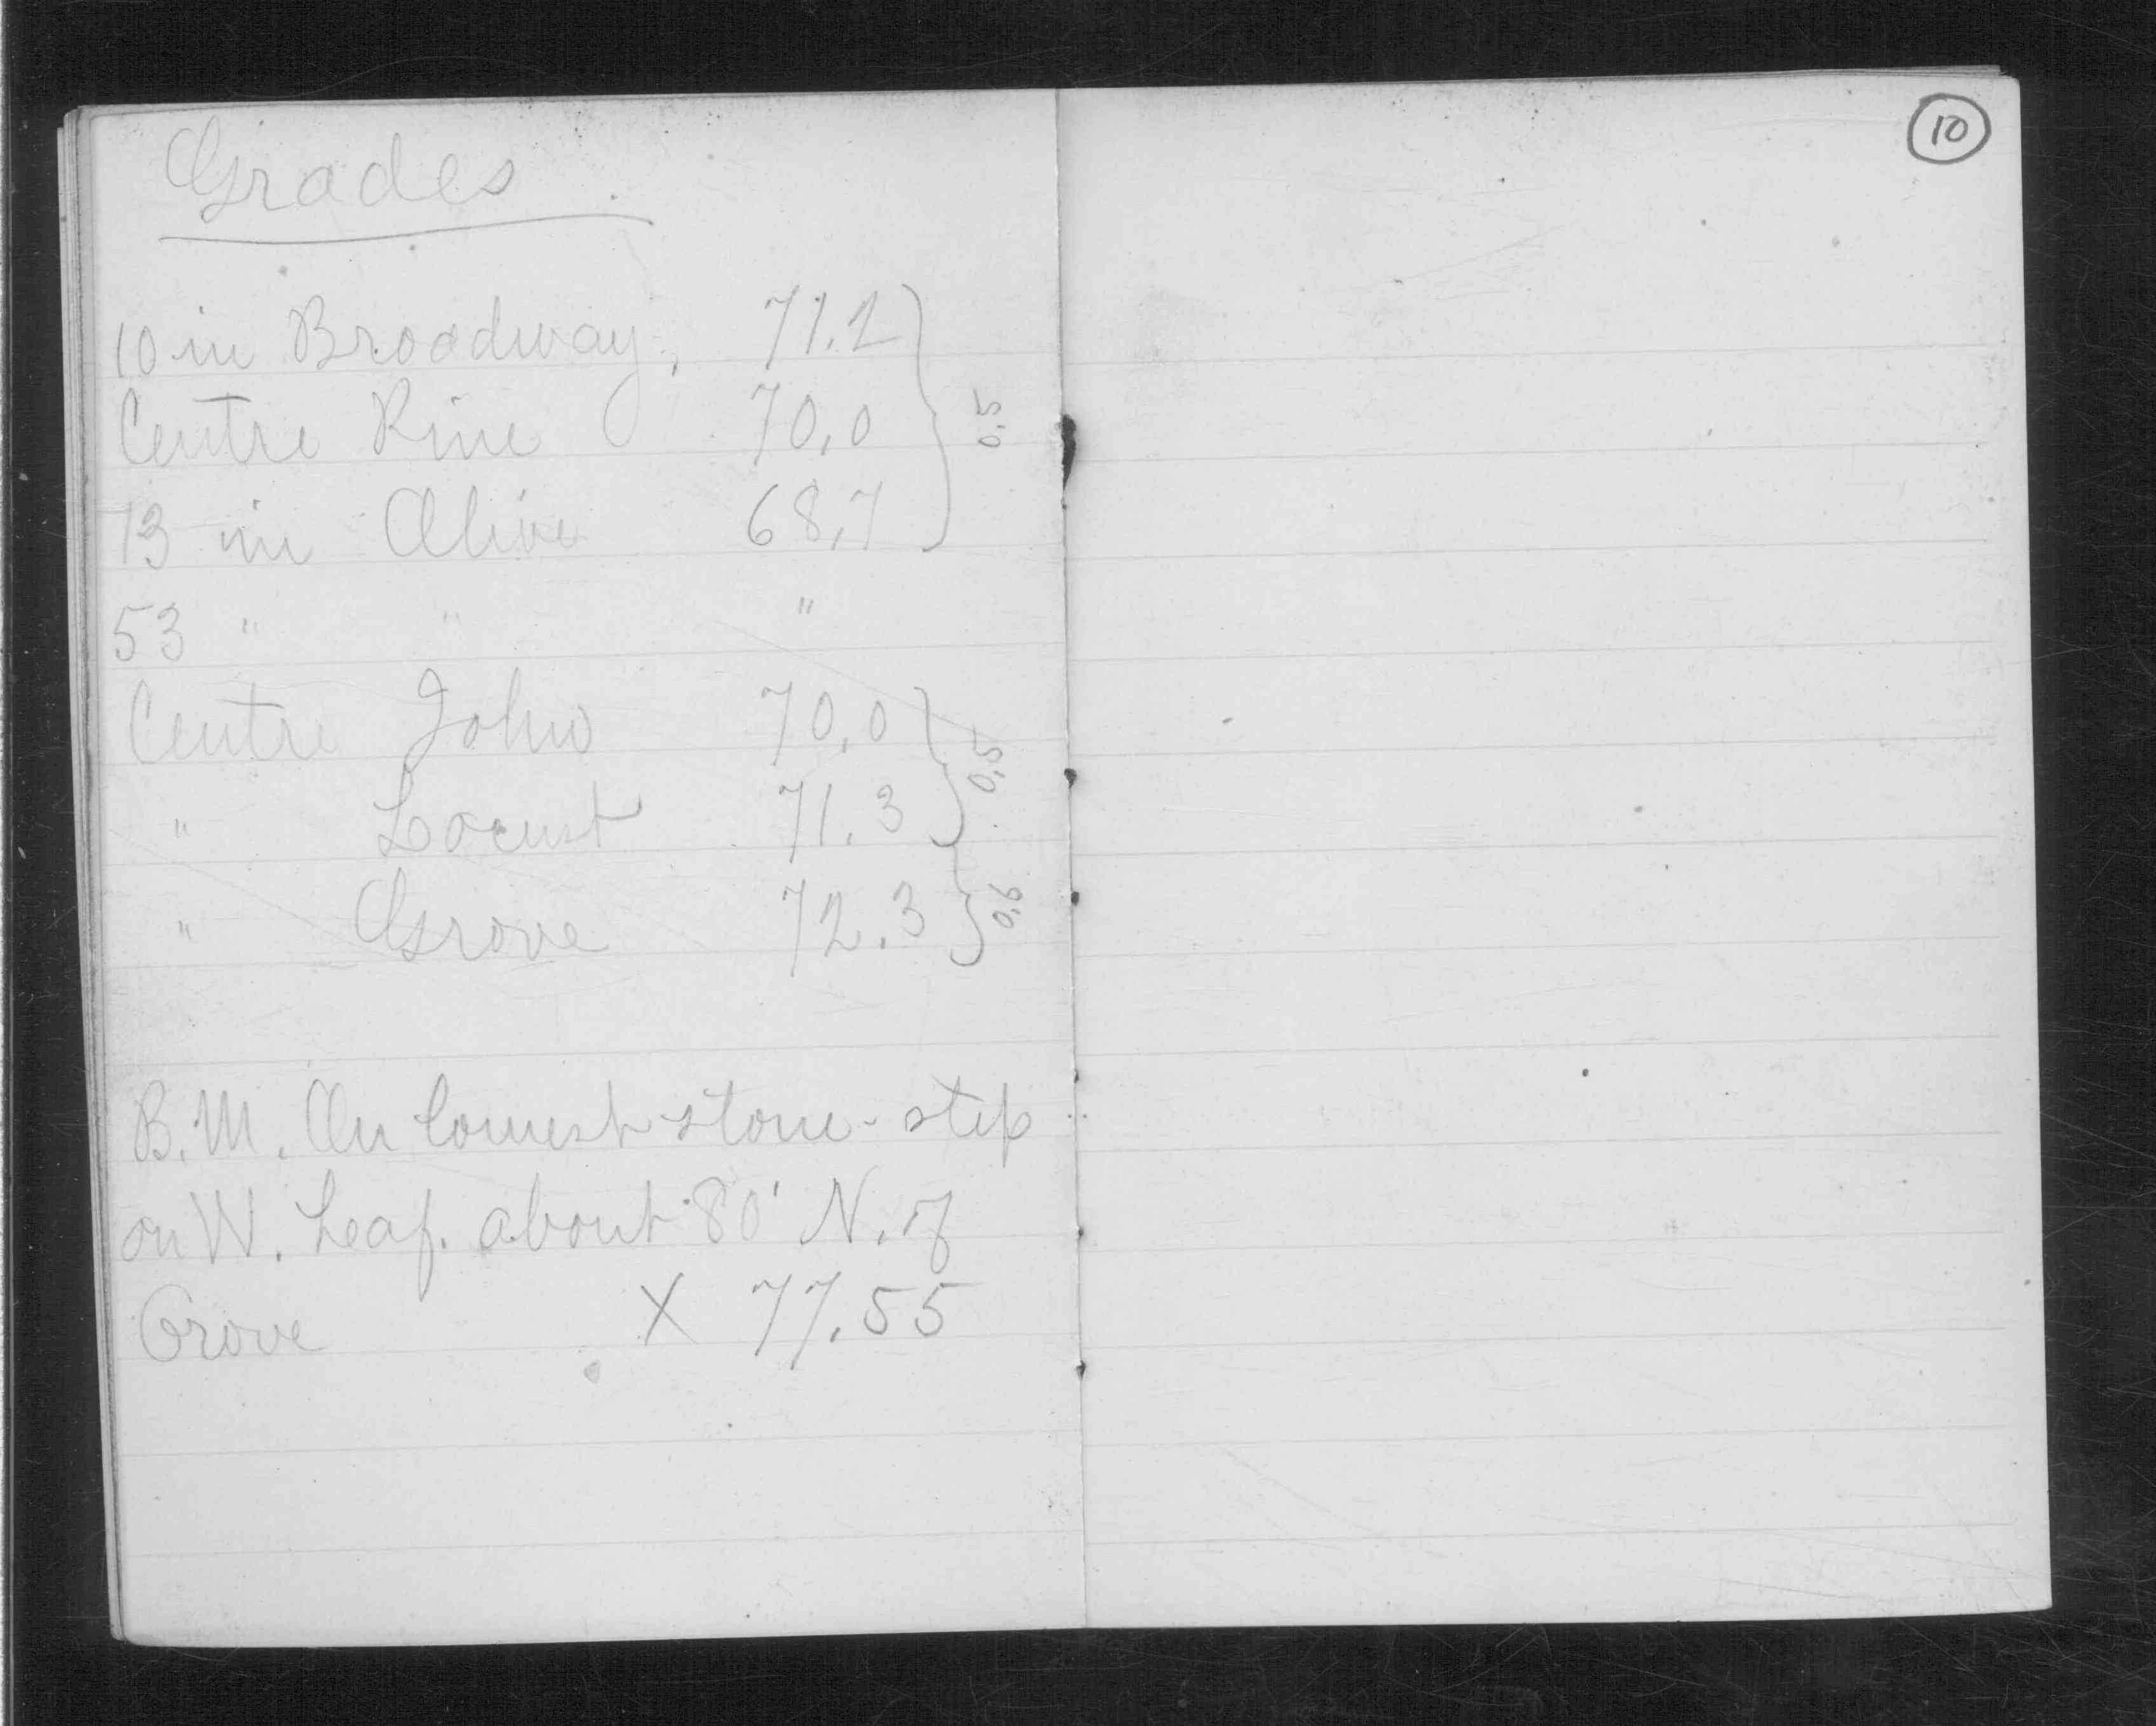 Grades
10 in Broadway, 71.2
Centre Pine 70.0
0.5
13 in Olive 68.7
53 " " "
Centre John 70.0
0.5
" Locust 71.3
" Grove 72.3
0.6
B.M. On lowest stone-step
on W. Leaf. about 80' N. of
Grove X 77.55
10